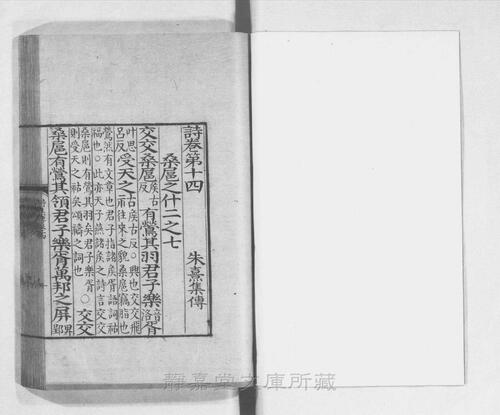 詩卷第十四
朱熹集傳
桑扈之什二之七
交交桑扈侯古反有鶯其羽君子樂音洛胥
叶思呂反受天之祜侯古反○興也交交飛往來之貌桑扈竊脂也
鶯然有文章也君子指諸侯胥語詞祜
福也○此亦天子燕諸侯之詩言交交
桑扈則有鶯其羽矣君子樂胥
則受天之祜矣頌禱之詞也○交交
桑扈有鶯其領君子樂胥萬邦之屏卑郢
靜嘉堂文庫所藏